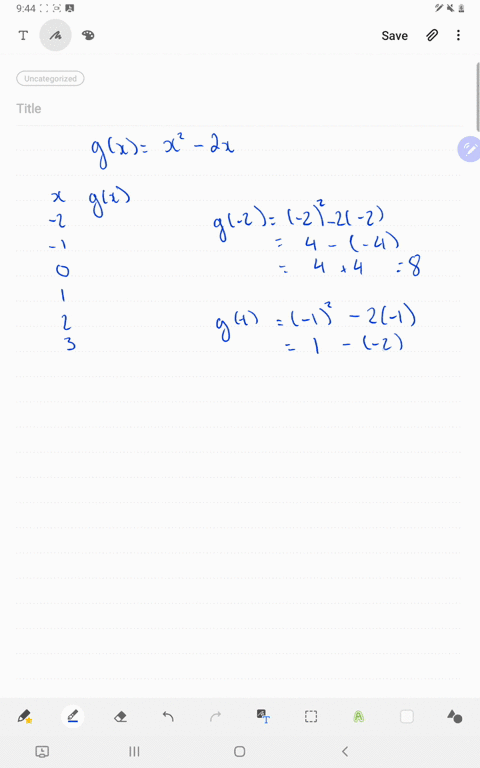 9:44
T
Save
Uncategorized
Title
g(x) = x² - 2x
x g(x)
-2
-1
0
1
2
3
g(-2) = (-2)² - 2(-2)
= 4 - (-4)
= 4 + 4 = 8
g(-1) = (-1)² - 2(-1)
= 1 - (-2)
T
A